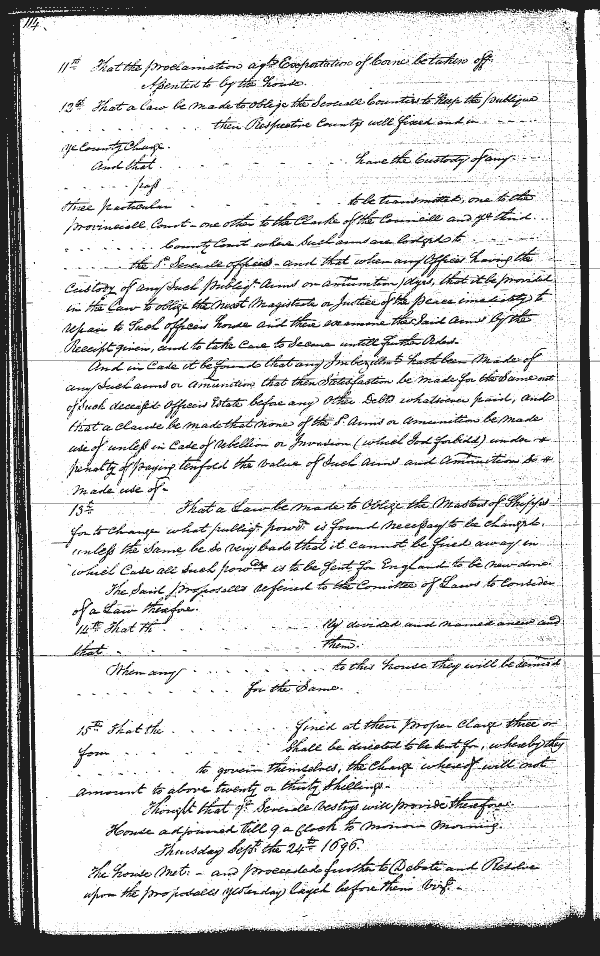 114.
11th That the proclamation agt Exportation of Corne be taken off.
Assented to by the house.
12th That a law be made to oblige the Severall Counties to keep the publique
their Respective County well fixed and in
ye County Charge.
And that have the Custody of any
pass
three particular to be transmitted, one to the
Provinciall Court - one other to the Clarke of the Councill and ye third
County Court where Such arms are lodged to
the sd Severale officers - and that when any Officer having the
Custody of any Such publiq Arms or amunition dyes, that it be provided
in the Law to oblige the next Magistrate or Justice of the peace imediately to
repair to Such officers house and there examine the Said Arms by the
Receipt given, and to take Care to Secure untill further Order.
And in Case it be found that any Imbezillmt hath been made of
any Such arms or amunition that then Satisfaction be made for the Same out
of Such deceased Officers Estate before any other Debts whatsoever paid, And
that a clause be made that none of the sd Arms or amunition be made
use of unless in Case of rebellion or Invasion (which God forbid) under
penalty of paying tenfold the value of Such Arms and Amunition So
made use of -
13th That a Law be made to Oblige the Masters of Shipps
for to Change what publiq powdr is found necessary to be changed,
unless the Same be So very bade that it cannot be fired away in
which Case all Such powdr is to be Sent for England to be new done
The Said proposalls referred to the Comittee of Laws to Consider
of a Law therefore.
14th That th ily divided and named anew and
that them.
When any to this house they will be
for the Same.
15th That the fined at their proper Charge three or
four Shall be directed to be sent for, whereby they
to govern themselves, the Charge whereof will not
amount to above twenty or thirty Shillings.
Thought that ye Severale Vestrys will provide therefore.
House adjourned till 9 a Clock to morrow Morning.
Thursday Septr the 24th 1696.
The house Met. - and proceeded further to Debate and Resolve
upon the proposalls yesterday Layd before them Vizt. -